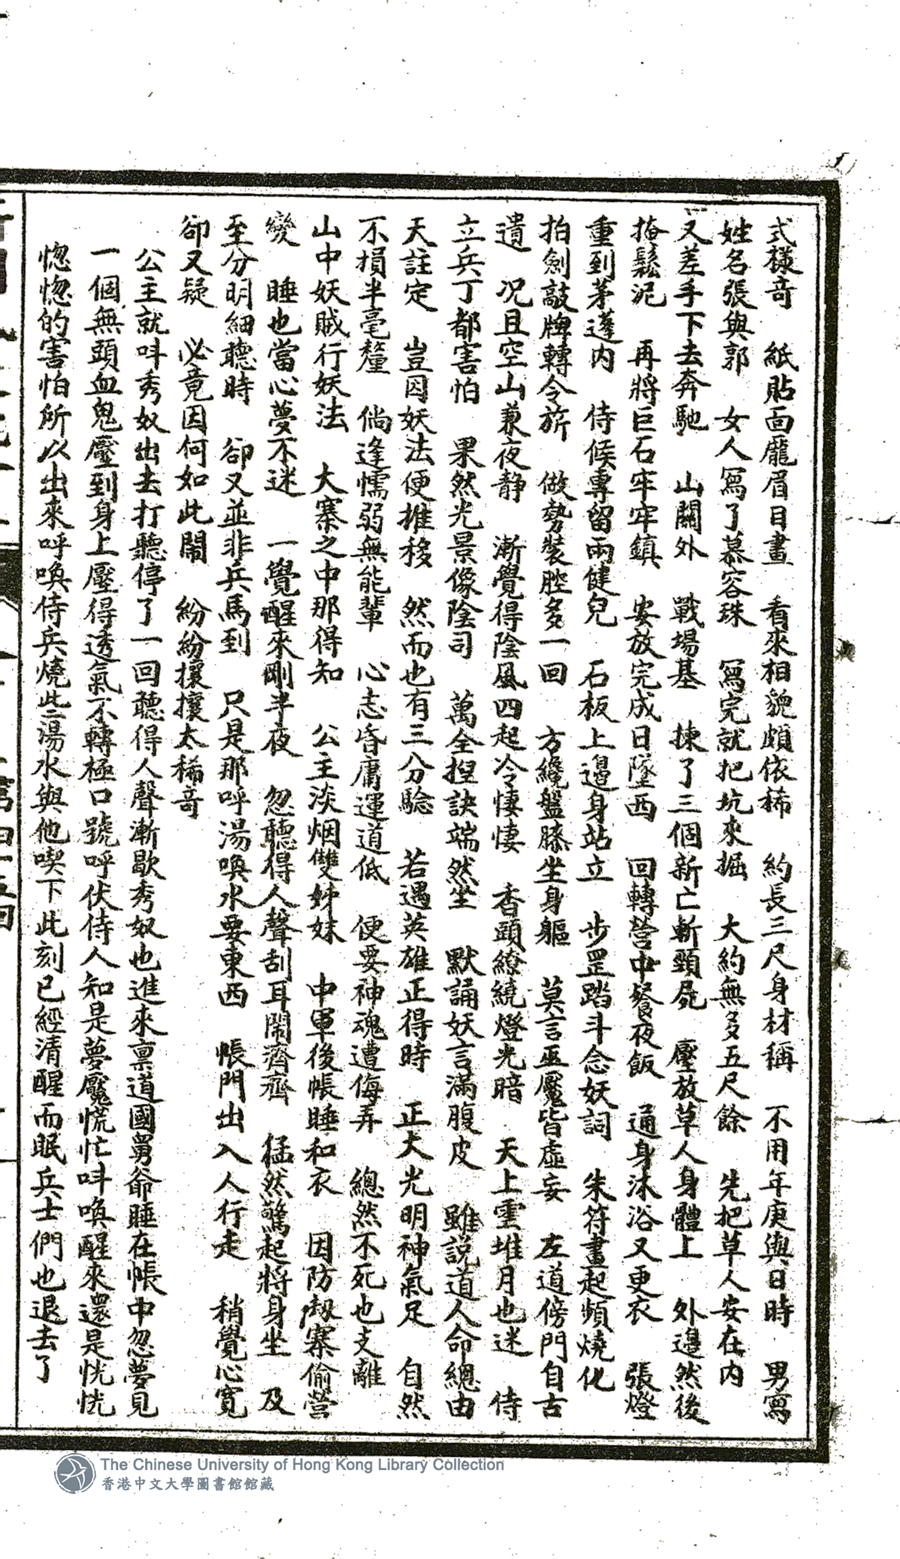 式樣奇　紙貼面龐眉目畫　看來相貌頗依稀　約長三尺身材稱　不用年庚與日時　男寫
姓名張與郭　女人寫了慕容珠　寫完就把坑來掘　大約無多五尺餘　先把草人安在內
又差手下去奔馳　山關外　戰場基　揀了三個新亡斬頸屍　壓放草人身體上　外邊然後
掩鬆泥　再將巨石牢牢鎮　安放完成日墜西　回轉營中餐夜飯　通身沐浴又更衣　張燈
重到茅蓬內　侍候專留兩健兒　石板上邊身站立　步罡踏斗念妖詞　朱符畫起頻燒化
拍劍敲牌轉令旂　做勢裝腔多一回　方纔盤膝坐身軀　莫言巫魘皆虛妄　左道傍門自古
遺　况且空山兼夜靜　漸覺得陰風四起冷悽悽　香頭繚繞燈光暗　天上雲堆月也迷　侍
立兵丁都害怕　果然光景像陰司　萬全捏訣端然坐　默誦妖言滿腹皮　雖説道人命總由
天註定　豈因妖法便推移　然而也有三分驗　若遇英雄正得時　正大光明神氣足　自然
不損半毫釐　倘逢懦弱無能輩　心志昏庸運道低　便要神魂遭侮弄　總然不死也支離
山中妖賊行妖法　大寨之中那得知　公主淡烟雙姊妹　中軍後帳睡和衣　因防刼寨偷營
變　睡也當心夢不迷　一覺醒來剛半夜　忽聽得人聲刮耳鬧齊齊　猛然驚起將身坐　及
至分明細聽時　卻又並非兵馬到　只是那呼湯喚水要東西　帳門出入人行走　稍覺心寬
卻又疑　必竟因何如此鬧　紛紛攘攘太稀奇
公主就叫秀奴出去打聽停了一回聽得人聲漸歇秀奴也進來禀道國舅爺睡在帳中忽夢見
一個無頭血鬼壓到身上壓得透氣不轉極口號呼伏侍人知是夢魘慌忙叫喚醒來還是恍恍
惚惚的害怕所以出來呼喚侍兵燒些湯水與他喫下此刻已經清醒而眠兵士們也退去了
第四十五回
The Chinese University of Hong Kong Library Collection
香港中文大學圖書館館藏